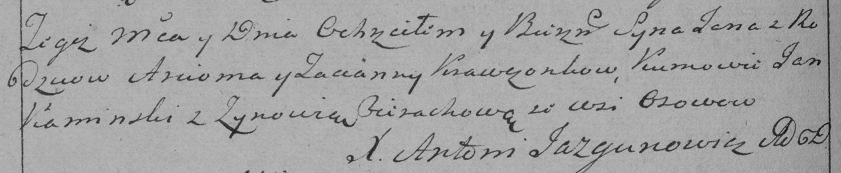 Tegoż Mca y Dnia Ochrzciłem y Bierz. Syna Jana z Ro
dzicow Arcioma y Zacianny Krawczonkow, Kumowie Jan
Kaminski z Zynowią Bierachową ze wsi Osowow
X. Antoni Jazgunowicz